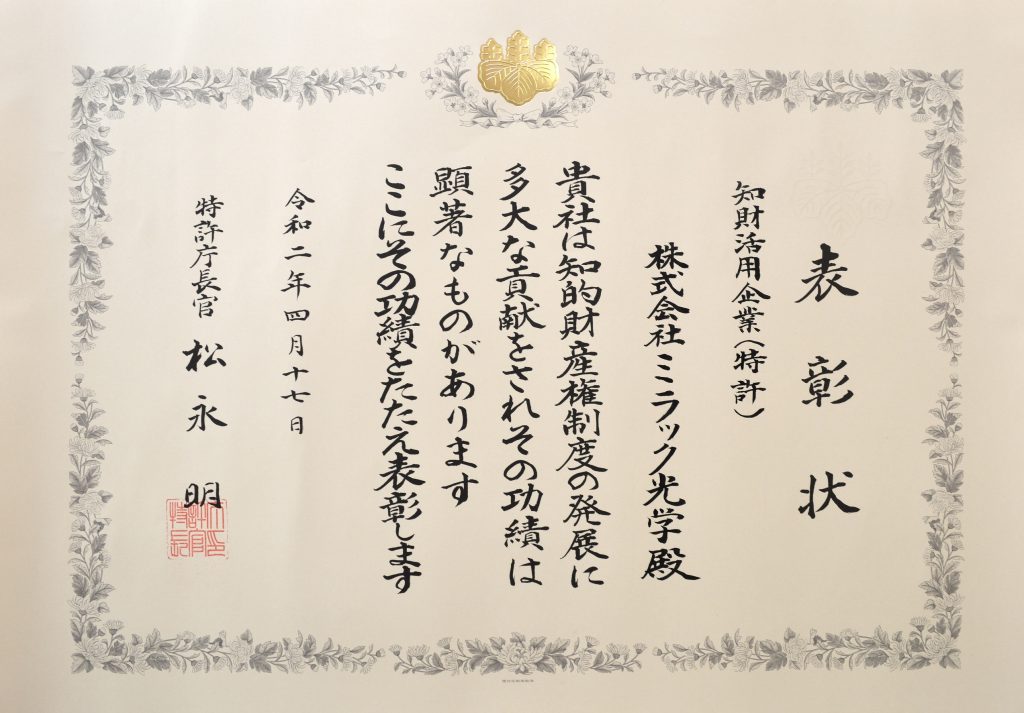 表彰状
知財活用企業(特許)
株式会社ミラック光学殿
貴社は知的財産権制度の発展に
多大な貢献をされその功績は
顕著なものがあります
ここにその功績をたたえ表彰します
令和二年四月十七日
特許庁長官 松永明